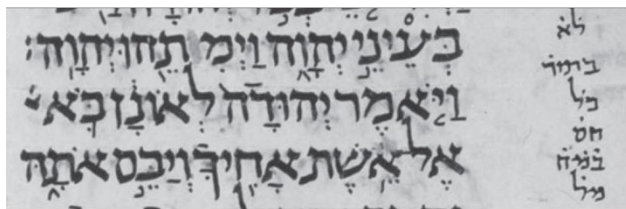 בְּעֵינֵי יְהוָה וַיְמִתֵהוּ יְהוָה׃
וַיֹּאמֶר יְהוּדָה לְאוֹנָן בֹּא
אֶל אֵשֶׁת אָחִיךָ וְיַבֵּם אֹתָהּ
לא
כל
חס
מיל